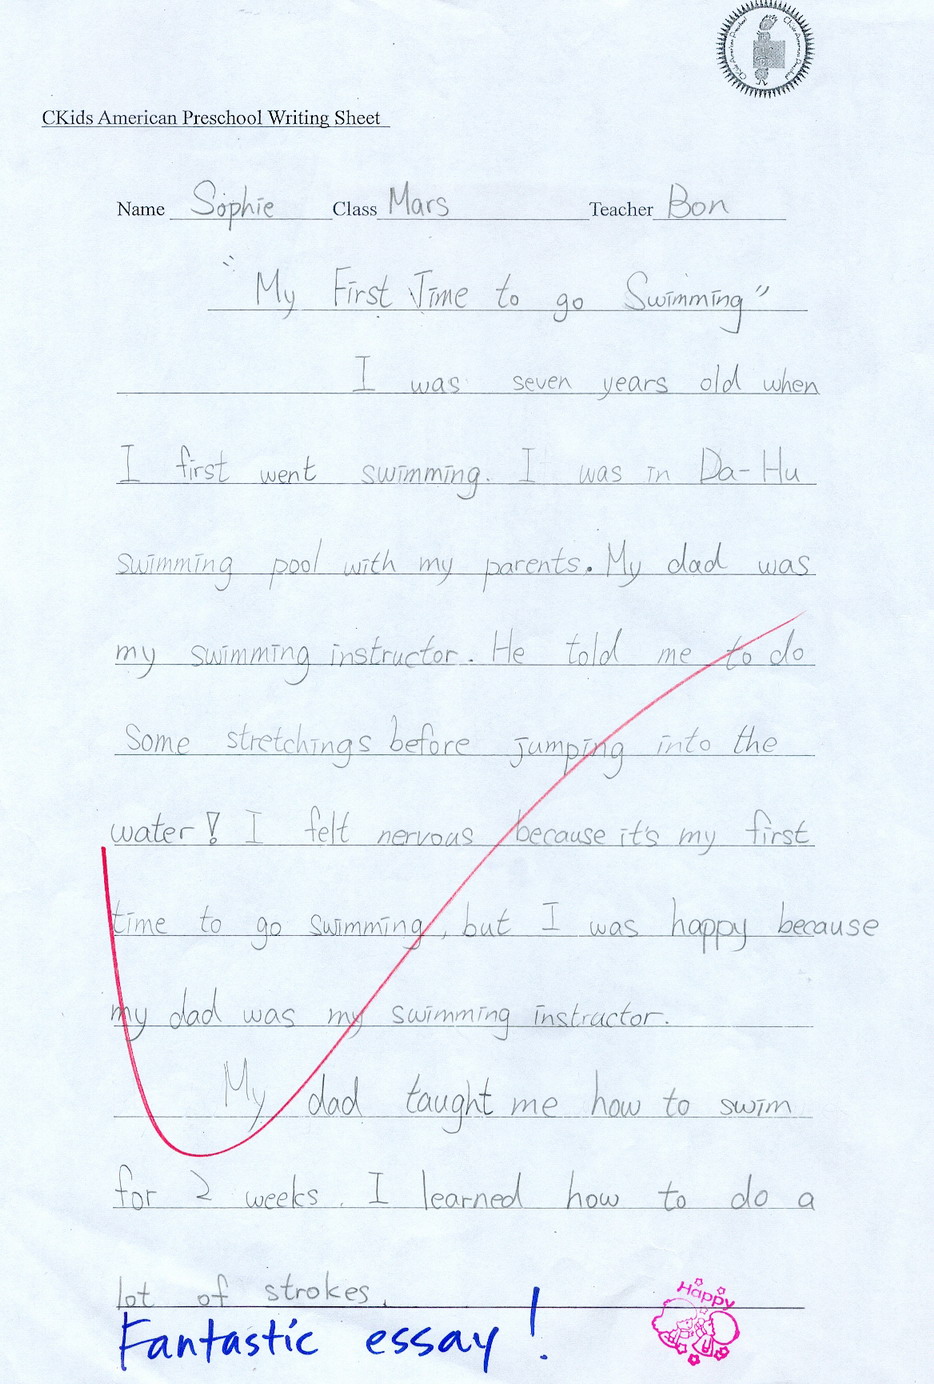 CKids American Preschool Writing Sheet
Name Sophie Class Mars Teacher Bon
"My First Time to go Swimming"
I was seven years old when
I first went swimming. I was in Da-Hu
swimming pool with my parents. My dad was
my swimming instructor. He told me to do
Some stretchings before jumping into the
water! I felt nervous because it's my first
time to go swimming, but I was happy because
my dad was my swimming instructor.
My dad taught me how to swim
for 2 weeks. I learned how to do a
lot of strokes.
Fantastic essay!
Happy